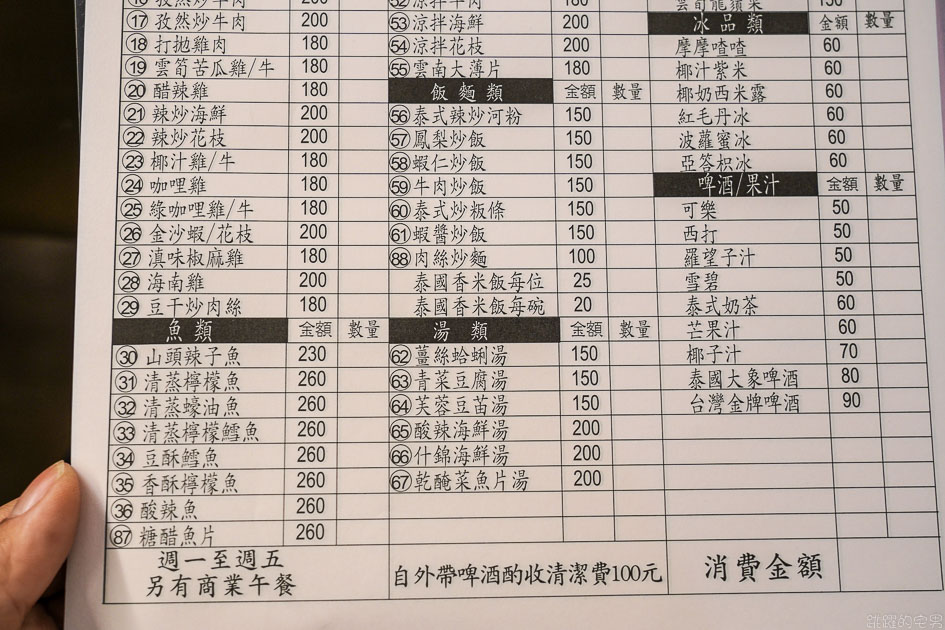 ⑰ 孜然炒牛肉 200
⑱ 打拋雞肉 180
⑲ 雲筍苦瓜雞/牛 180
⑳ 醋辣雞 180
㉑ 辣炒海鮮 200
㉒ 辣炒花枝 200
㉓ 椰汁雞/牛 180
㉔ 咖哩雞 180
㉕ 綠咖哩雞/牛 180
㉖ 金沙蝦/花枝 200
㉗ 滇味椒麻雞 180
㉘ 海南雞 200
㉙ 豆干炒肉絲 180
魚類 金額 數量
㉚ 山頭辣子魚 230
㉛ 清蒸檸檬魚 260
㉜ 清蒸蠔油魚 260
㉝ 清蒸檸檬鱈魚 260
㉞ 豆酥鱈魚 260
㉟ 香酥檸檬魚 260
㊱ 酸辣魚 260
87 糖醋魚片 260
週一至週五
另有商業午餐
53 涼拌海鮮 200
54 涼拌花枝 200
55 雲南大薄片 180
飯麵類 金額 數量
56 泰式辣炒河粉 150
57 鳳梨炒飯 150
58 蝦仁炒飯 150
59 牛肉炒飯 150
60 泰式炒粄條 150
61 蝦醬炒飯 150
88 肉絲炒麵 100
泰國香米飯每位 25
泰國香米飯每碗 20
湯類 金額 數量
62 薑絲蛤蜊湯 150
63 青菜豆腐湯 150
64 芙蓉豆苗湯 150
65 酸辣海鮮湯 200
66 什錦海鮮湯 200
67 乾醃菜魚片湯 200
自外帶啤酒酌收清潔費100元
冰品類 金額 數量
摩摩喳喳 60
椰汁紫米 60
椰奶西米露 60
紅毛丹冰 60
波羅蜜冰 60
亞答枳冰 60
啤酒/果汁 金額 數量
可樂 50
西打 50
羅望子汁 50
雪碧 50
泰式奶茶 60
芒果汁 60
椰子汁 70
泰國大象啤酒 80
台灣金牌啤酒 90
消費金額
跳躍的宅男